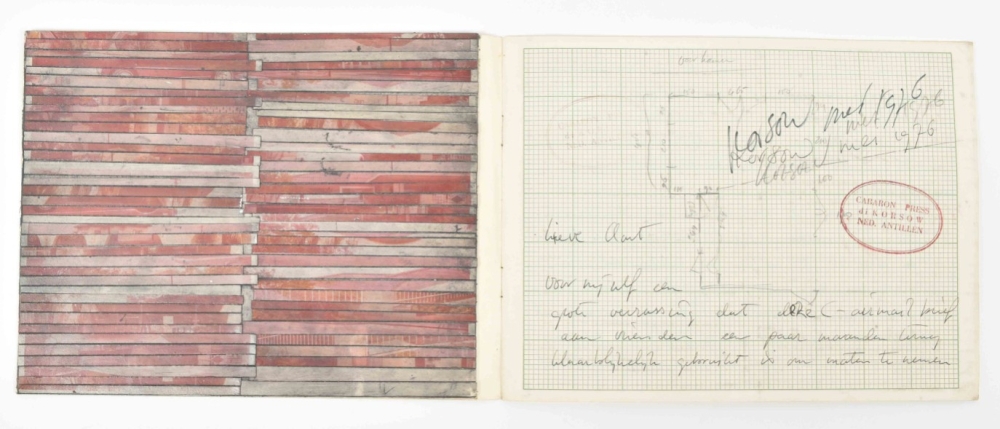 Korsow mei 1976
mei 1976
Korsow mei 1976
CARABON PRESS
di KORSOW
NED. ANTILLEN
lieve Aart
voor mijzelf een
grote verrassing dat deze (-airmail brief
aan vrienden een paar maanden terug
klaarblijkelijk gebruikt is om maten te nemen